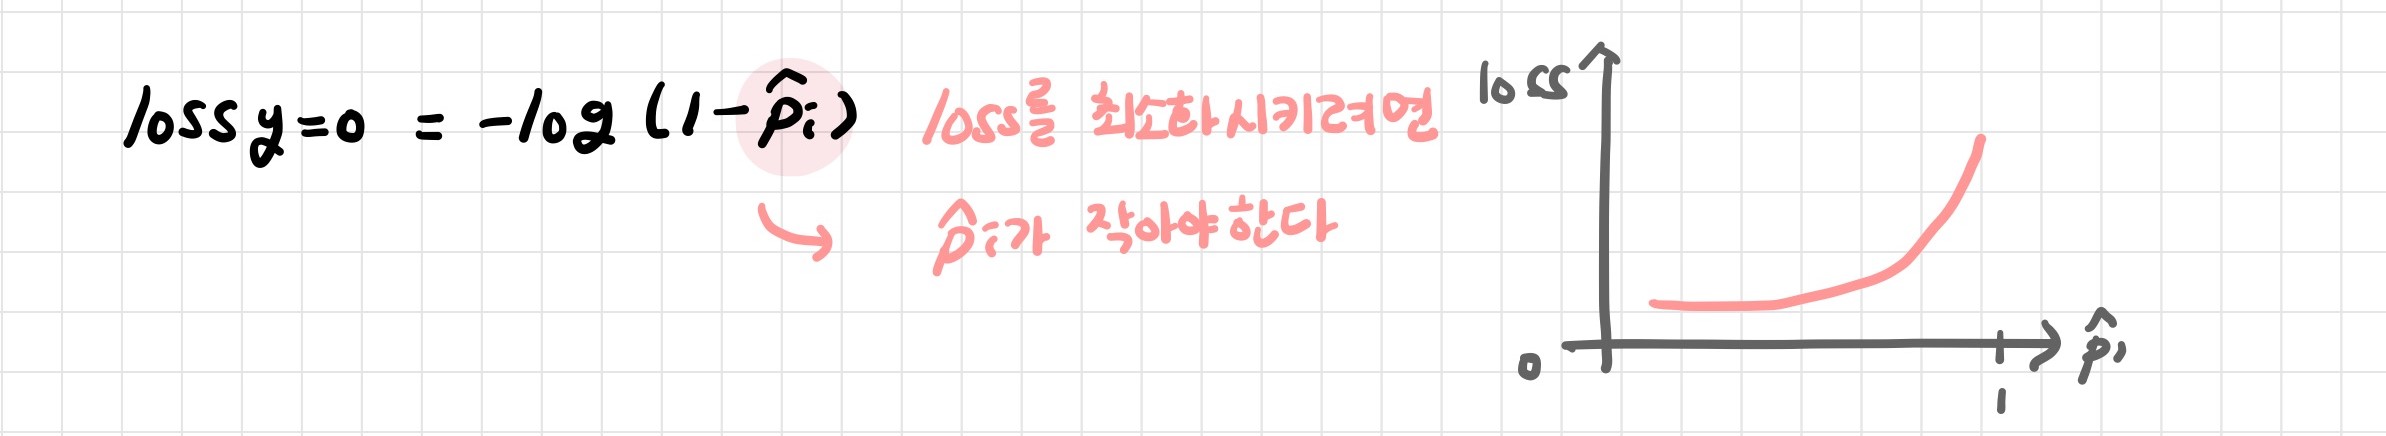 loss y=0 = -log (1-p̂i) loss를 최소화시키려면
p̂i가 작아야한다
loss
0
1
p̂i